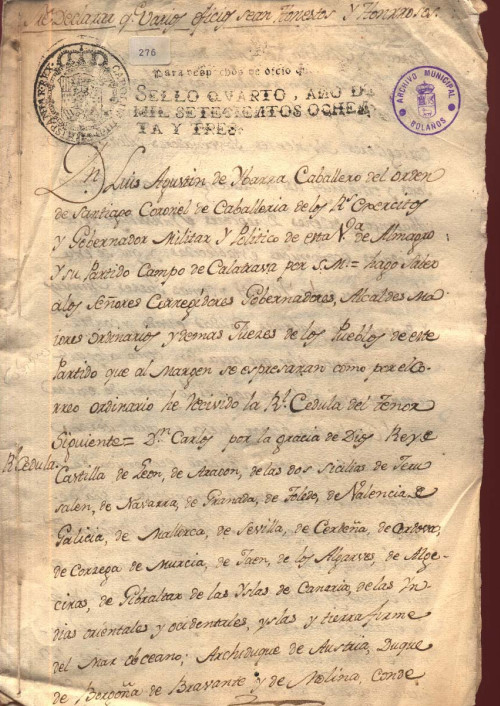 Declarar q.e Varios oficios sean Honestos y Honrrosos.
276
Para despachos de oficio q.
SELLO QVARTO, AÑO DE
MIL SETECIENTOS OCHEN
TA Y TRES.
ARCHIVO MUNICIPAL
BOLAÑOS
Dn. Luis Agustin de Ybarra Caballero del orden
de Santiago Coronel de Caballeria de los Rs. Exercitos
y Gobernador Militar y Politico de esta Va. de Almagro
y su Partido Campo de Calatrava por S.M. = hago saber
a los Señores Corregidores Gobernadores, Alcaldes Ma
iores ordinarios y demas Juezes de los Pueblos de este
Partido que al Margen se espresaran como por el Co-
rreo ordinario he recivido la Rl. Cedula del tenor
Rl. Cedula
Siguiente = Dn. Carlos por la gracia de Dios Rey de
Castilla de Leon, de Aragon, de las dos Sicilias de Jeru
salen, de Navarra, de Granada, de Toledo, de Valencia, de
Galicia, de Mallorca, de Sevilla, de Cerdeña, de Cordova,
de Corzega de Murcia, de Jaen, de los Algarves, de Alge-
ciras, de Gibraltar de las Yslas de Canaria, de las Yn
dias orientales y ocidentales, yslas y tierra firme
del Mar oceano; Archiduque de Austria, Duque
de Borgoña de Bravante y de Molina, Conde